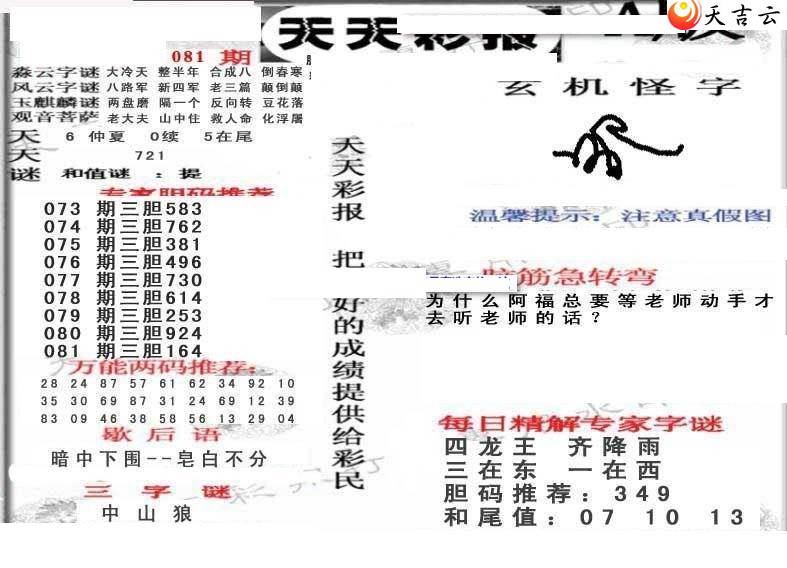 天吉云
天天彩报
081 期
森云字谜 大冷天 整半年 合成八 倒春寒
风云字谜 八路军 新四军 老三篇 颠倒颠
玉麒麟谜 两盘磨 隔一个 反向转 豆花落
观音菩萨 老大夫 山中住 救人命 化浮屠
天 6 仲夏 0续 5在尾
天 721
谜 和值谜 : 提
专家胆码推荐
073 期三胆583
074 期三胆762
075 期三胆381
076 期三胆496
077 期三胆730
078 期三胆614
079 期三胆253
080 期三胆924
081 期三胆164
万能两码推荐:
28 24 87 57 61 62 34 92 10
35 30 69 87 31 24 69 12 39
83 09 46 38 58 56 13 29 04
歇后语
暗中下围--皂白不分
三字谜
中山狼
天天彩报 把好的成绩提供给彩民
玄机怪字
温馨提示: 注意真假图
脑筋急转弯
为什么阿福总要等老师动手才
去听老师的话？
每日精解专家字谜
四龙王 齐降雨
三在东 一在西
胆码推荐: 349
和尾值: 07 10 13